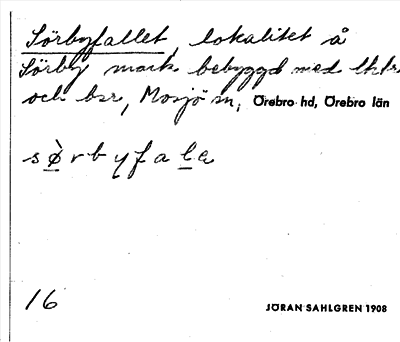 Sörbyfallet, lokalitet å
Sörby mark bebyggd med lht.
och bsr, Mosjö sn, Örebro hd, Örebro län
sø̀rbyfala
16
JÖRAN SAHLGREN 1908